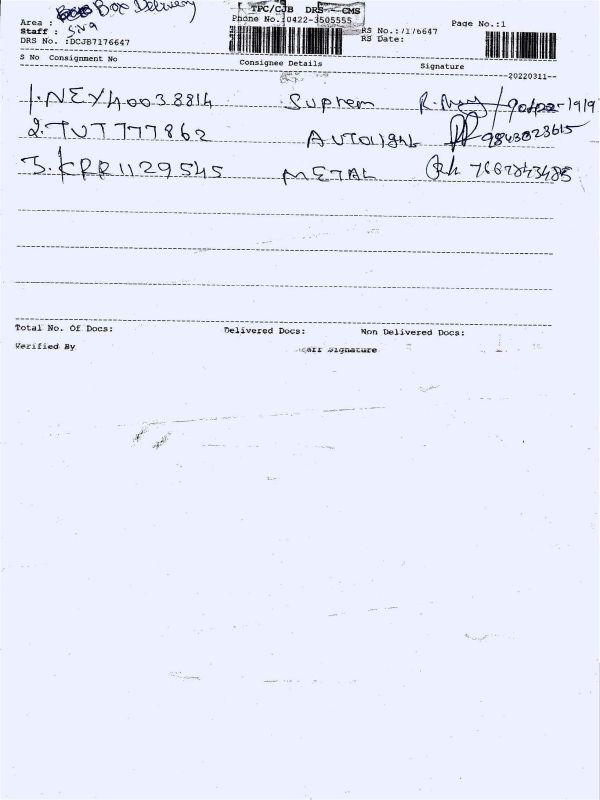 Box Delivery
TPC/CJB DRS CMS
Area :
Phone No.:0422-3505555
Page No.:1
Staff :
RS No.:7176647
DRS No. :DCJB7176647
RS Date:
S No Consignment No Consignee Details Signature
--20220311--
1. NEY40038814 Suprem R.
2. TUT777862 9843023615
3. KRR1129545 METAL
Total No. Of Docs: Delivered Docs: Non Delivered Docs:
Verified By Signature